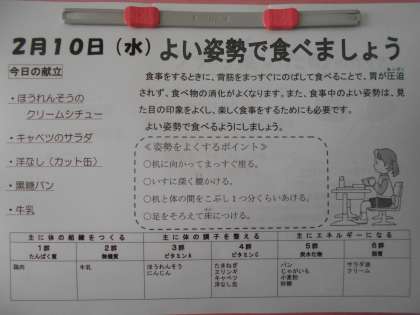 2月10日（水）よい姿勢で食べましょう
今日の献立
・ほうれんそうの
クリームシチュー
・キャベツのサラダ
・洋なし（カット缶）
・黒糖パン
・牛乳
食事をするときに、背筋をまっすぐにのばして食べることで、胃が圧迫
されず、食べ物の消化がよくなります。また、食事中のよい姿勢は、見
た目の印象をよくし、楽しく食事をするためにも必要です。
よい姿勢で食べるようにしましょう。
≪姿勢をよくするポイント≫
○机に向かってまっすぐ座る。
○いすに深く腰かける。
○机と体の間をこぶし１つ分くらいあける。
○足をそろえて床につける。
主に体の組織をつくる 主に体の調子を整える 主にエネルギーになる
1群 2群 3群 4群 5群 6群
たんぱく質 無機質 ビタミンA ビタミンC 炭水化物 脂質
鶏肉 牛乳 ほうれんそう たまねぎ パン サラダ油
にんじん エリンギ じゃがいも クリーム
キャベツ 小麦粉
洋なし缶 砂糖